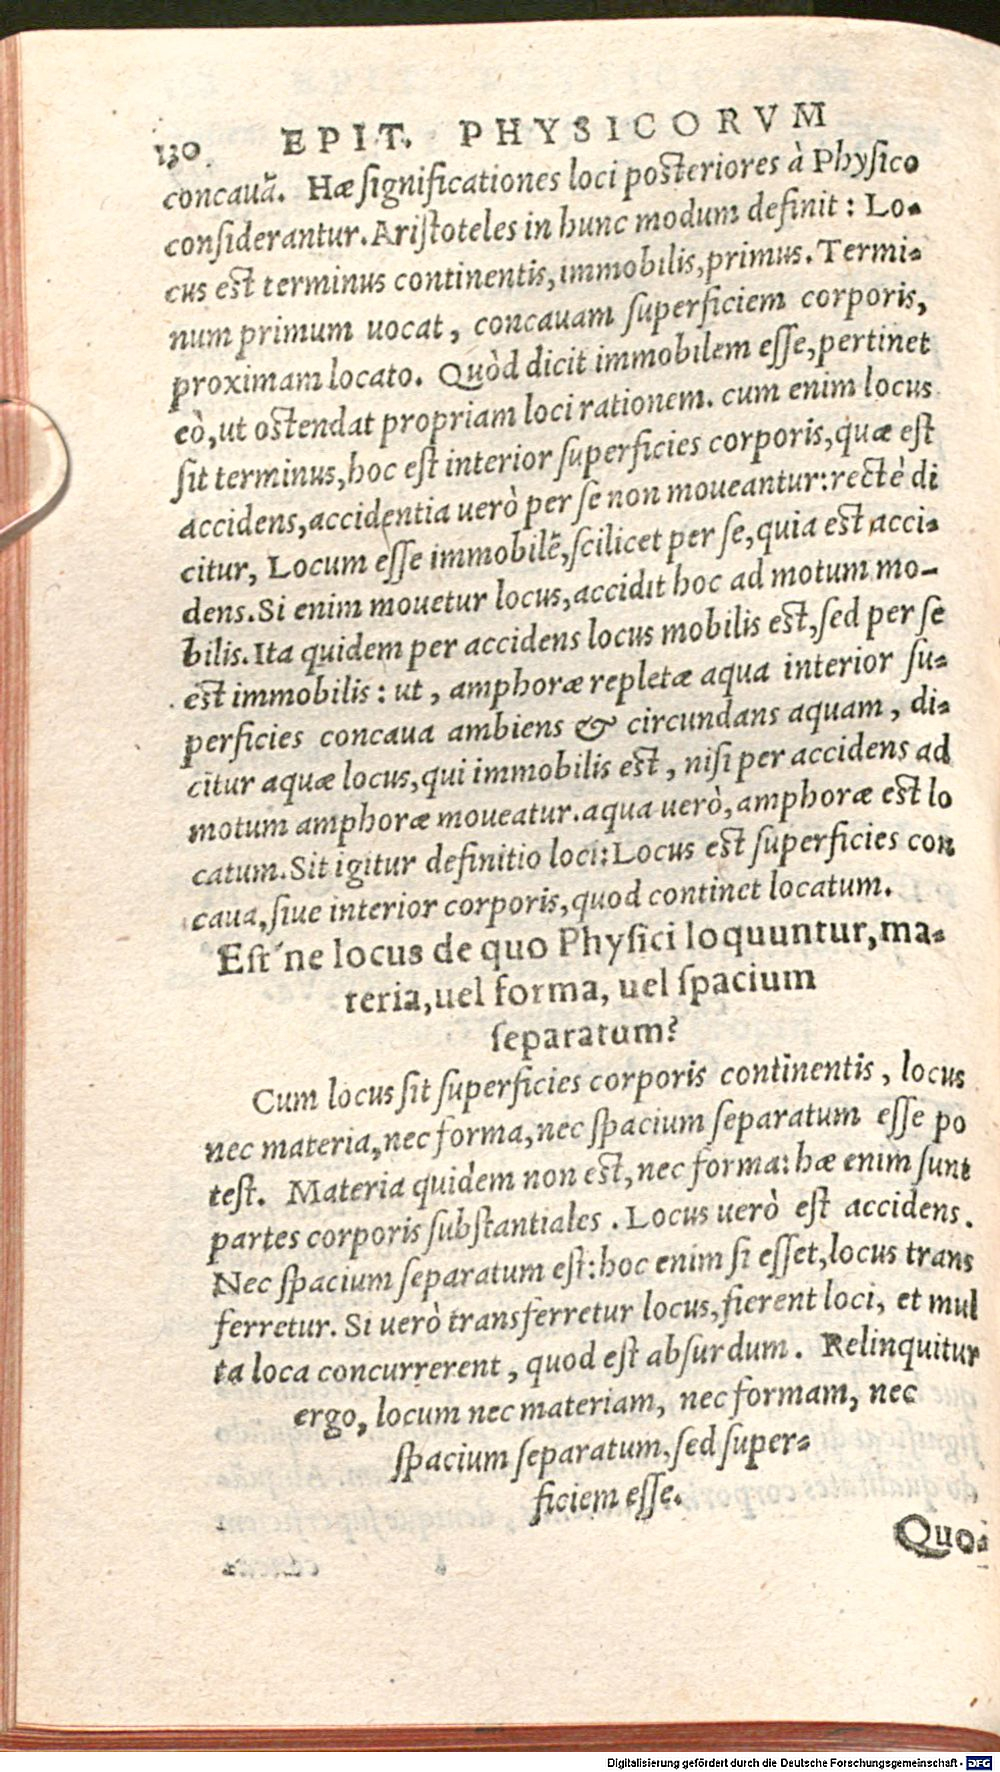 130. EPIT. PHYSICORVM
concauā. Hæ significationes loci posteriores à Physico
considerantur. Aristoteles in hunc modum definit: Lo-
cus est terminus continentis, immobilis, primus. Termi-
num primum uocat, concauam superficiem corporis,
proximam locato. Quòd dicit immobilem esse, pertinet
eò, ut ostendat propriam loci rationem. cum enim locus
sit terminus, hoc est interior superficies corporis, quæ est
accidens, accidentia uerò per se non moueantur: rectè di
citur, Locum esse immobilē, scilicet per se, quia est acci-
dens. Si enim mouetur locus, accidit hoc ad motum mo-
bilis. Ita quidem per accidens locus mobilis est, sed per se
est immobilis: ut, amphoræ repletæ aqua interior su-
perficies concaua ambiens & circundans aquam, di-
citur aquæ locus, qui immobilis est, nisi per accidens ad
motum amphoræ moueatur. aqua uerò, amphoræ est lo
catum. Sit igitur definitio loci: Locus est superficies con
caua, siue interior corporis, quod continet locatum.
Est'ne locus de quo Physici loquuntur, ma-
teria, uel forma, uel spacium
separatum?
Cum locus sit superficies corporis continentis, locus
nec materia, nec forma, nec spacium separatum esse po
test. Materia quidem non est, nec forma: hæ enim sunt
partes corporis substantiales. Locus uerò est accidens.
Nec spacium separatum est: hoc enim si esset, locus trans
ferretur. Si uerò transferretur locus, fierent loci, et mul
ta loca concurrerent, quod est absurdum. Relinquitur
ergo, locum nec materiam, nec formam, nec
spacium separatum, sed super-
ficiem esse.
Quo-
Digitalisierung gefördert durch die Deutsche Forschungsgemeinschaft - DFG